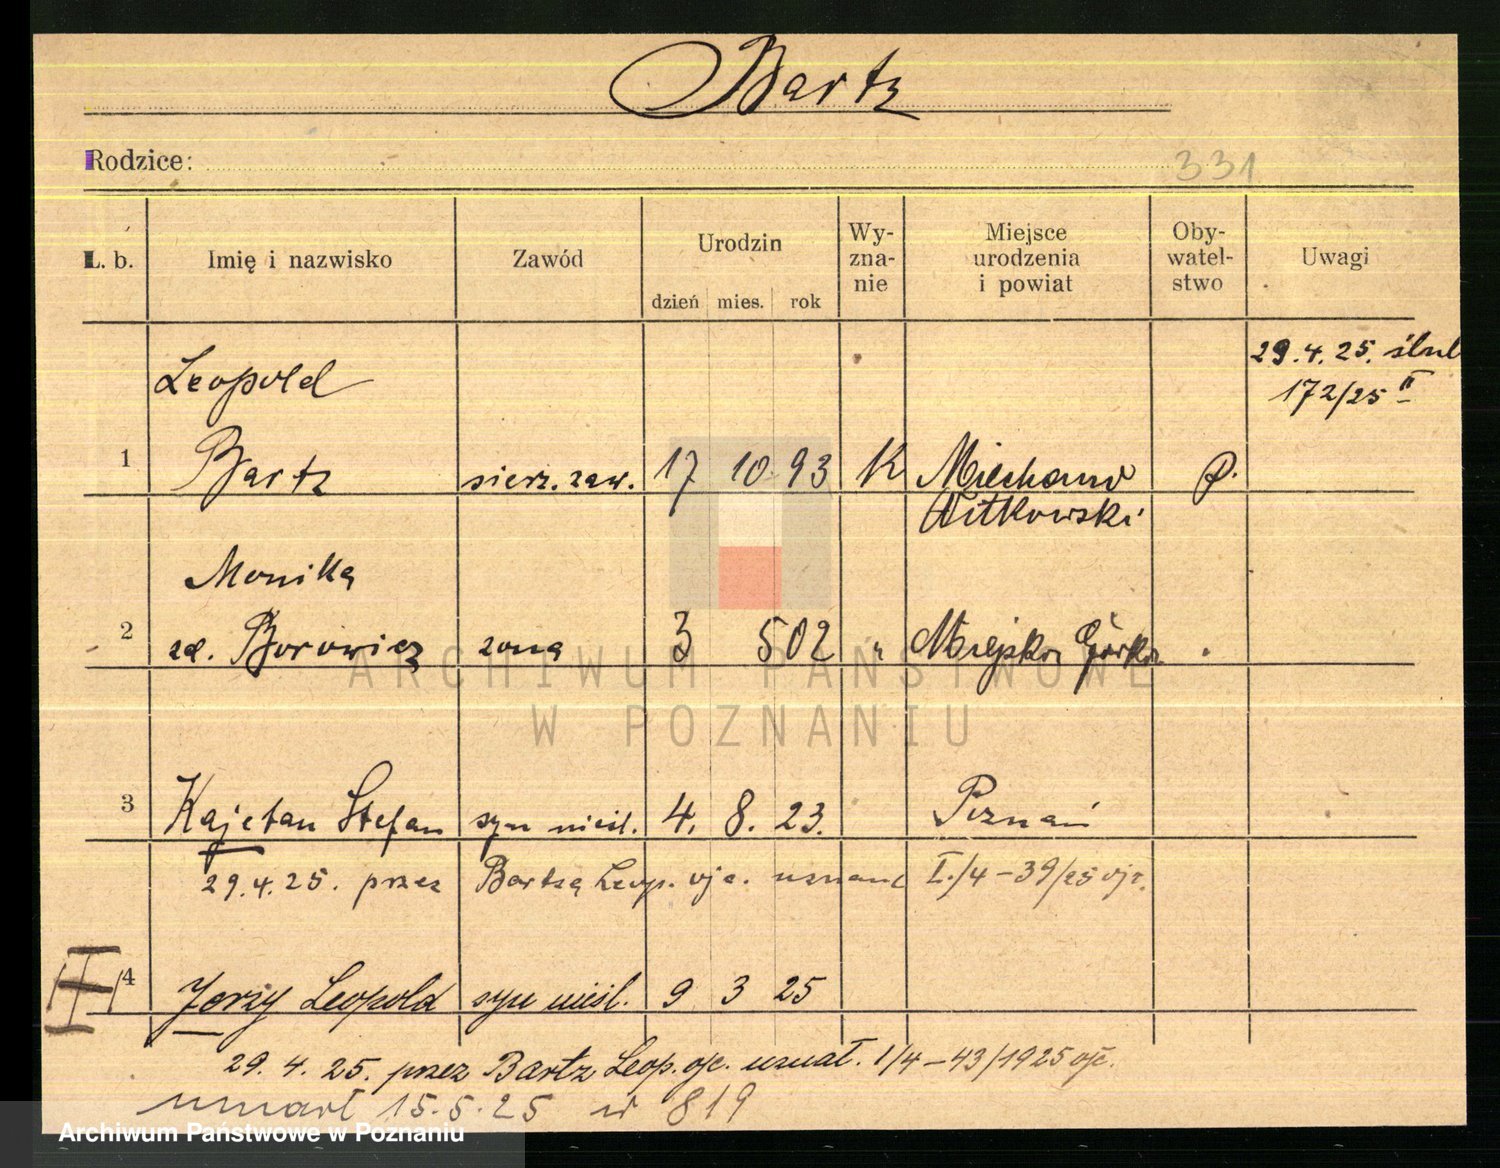 Bartz
Rodzice:
331
L. b. Imię i nazwisko Zawód Urodzin dzień mies. rok Wy-zna-nie Miejsce urodzenia i powiat Oby-watel-stwo Uwagi
29.4.25. ślub
172/25 II
Leopold
1 Bartz sierz. zaw. 17 10 93 K P.
Witkowski
Monika
2 zd. Borowicz żona 3 5 02 " Miejska Górka
ARCHIWUM PAŃSTWOWE
W POZNANIU
3 Kajetan Stefan syn nieśl. 4. 8. 23. Poznań
29.4.25. przez Bartza Leop. ojc. uznane I./4-39/25 ojc.
II
4 Jerzy Leopold syn nieśl. 9 3 25
29.4.25. przez Bartz Leop. ojc. uznał. 1/4-43/1925 ojc.
umarł 15.5.25 nr 819
Archiwum Państwowe w Poznaniu